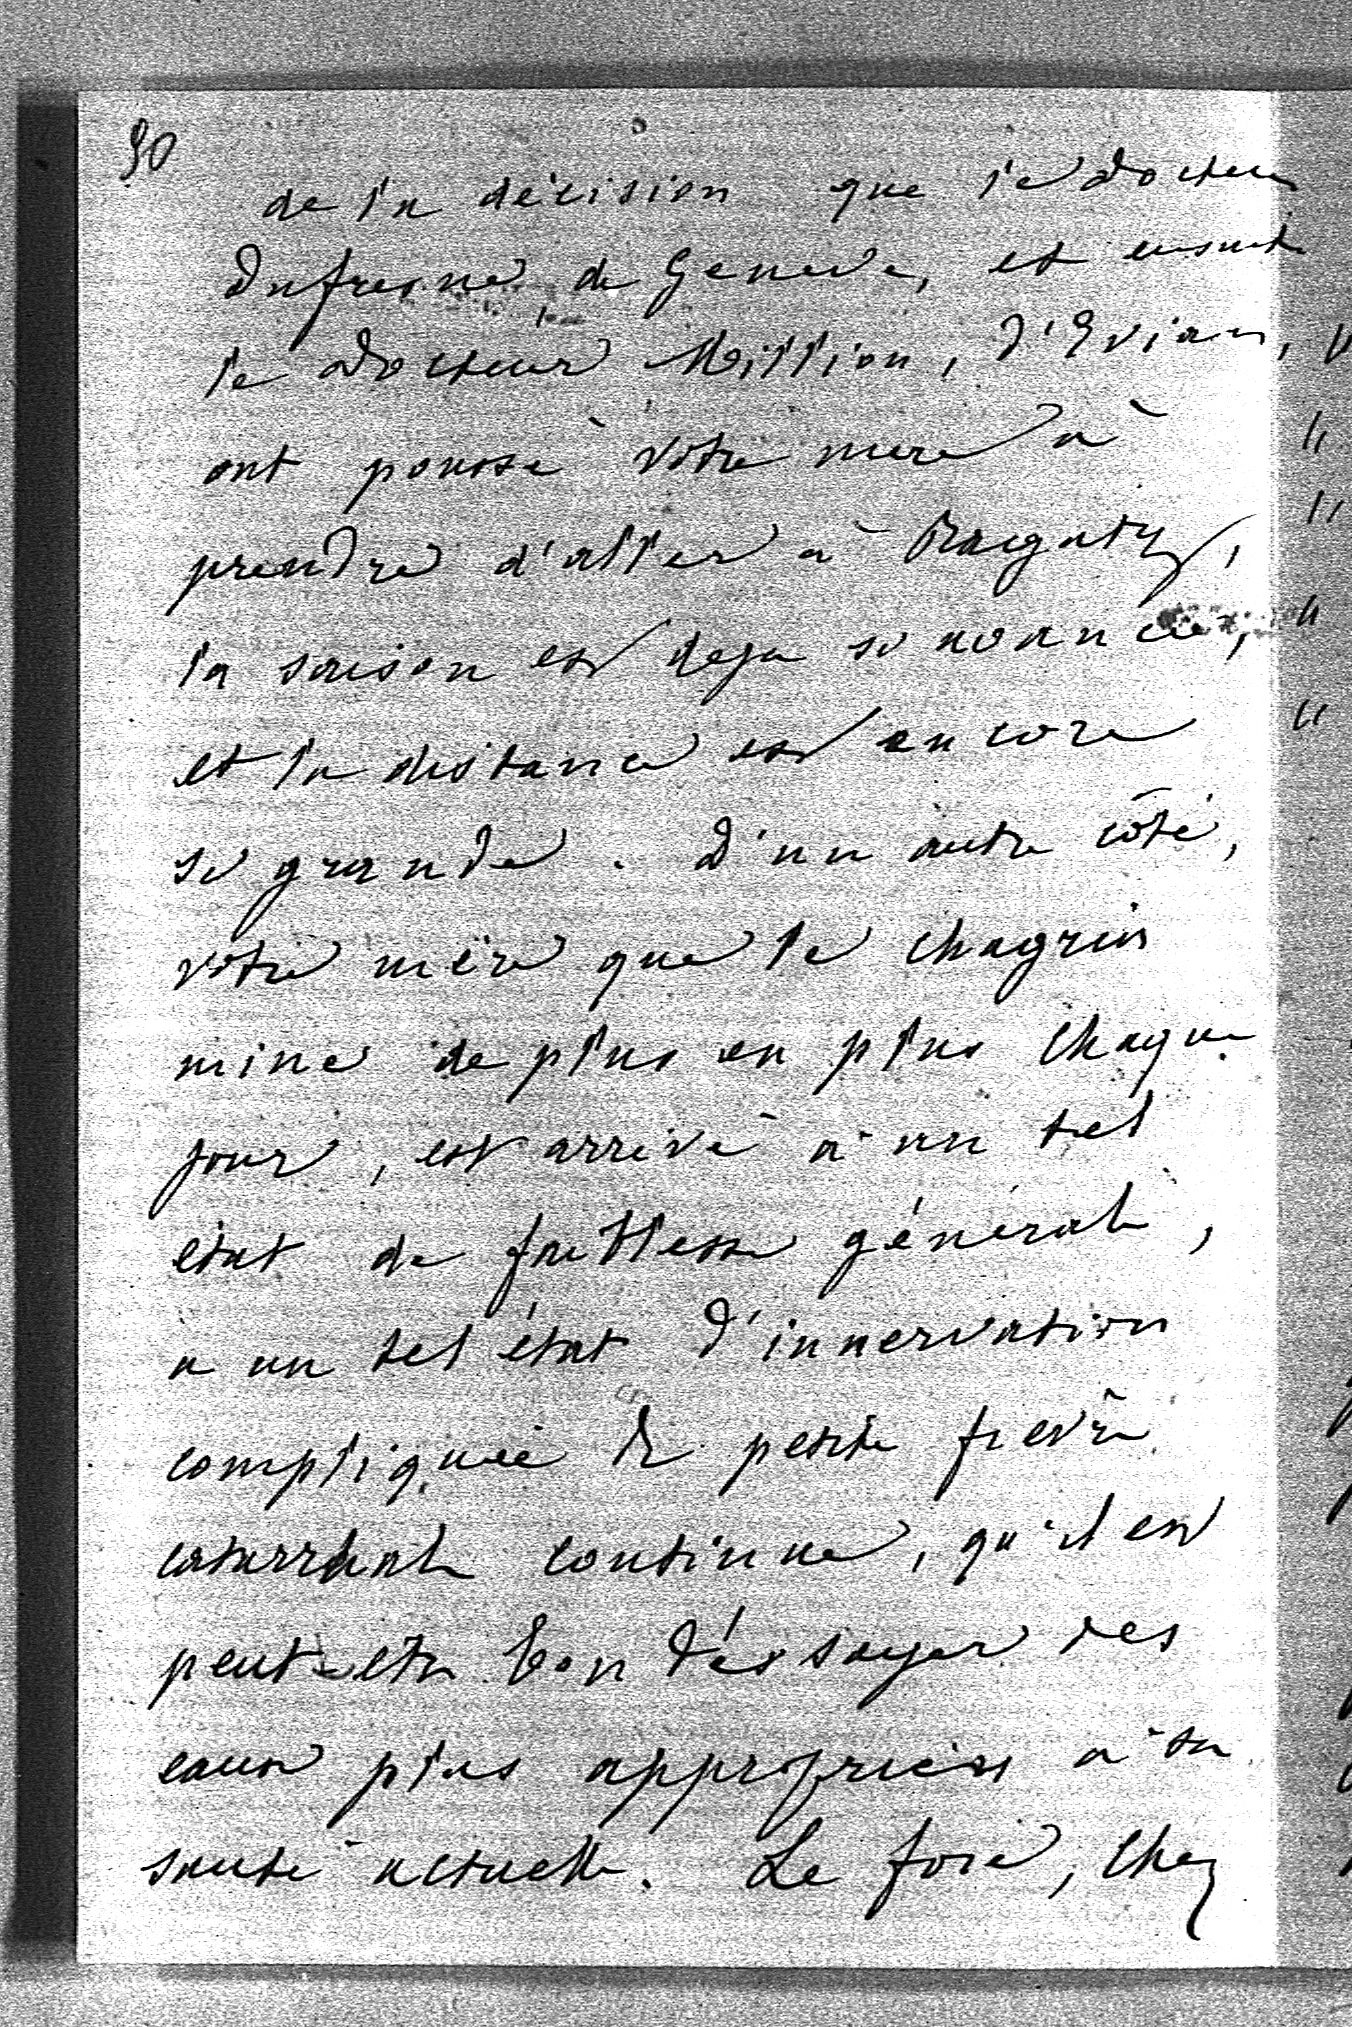 90
de la décision que le docteur
Dufresne de Geneve, et ensuite
le docteur Million, d'Evian,
ont poussé votre mere à
prendre d'aller à Ragatz,
la saison est deja si avancée,
et la distance est encore
si grande. D'un autre côté,
votre mère que le chagrin
mine de plus en plus chaque
jour, est arrivé à un tel
état de faiblesse générale,
a un tel état d'innervation
compliquée de petite fievre
catarrhale continue, qu'il est
peut-etre bon d'essayer des
eaux plus appropriées à sa
santé actuelle. Le foie, chez